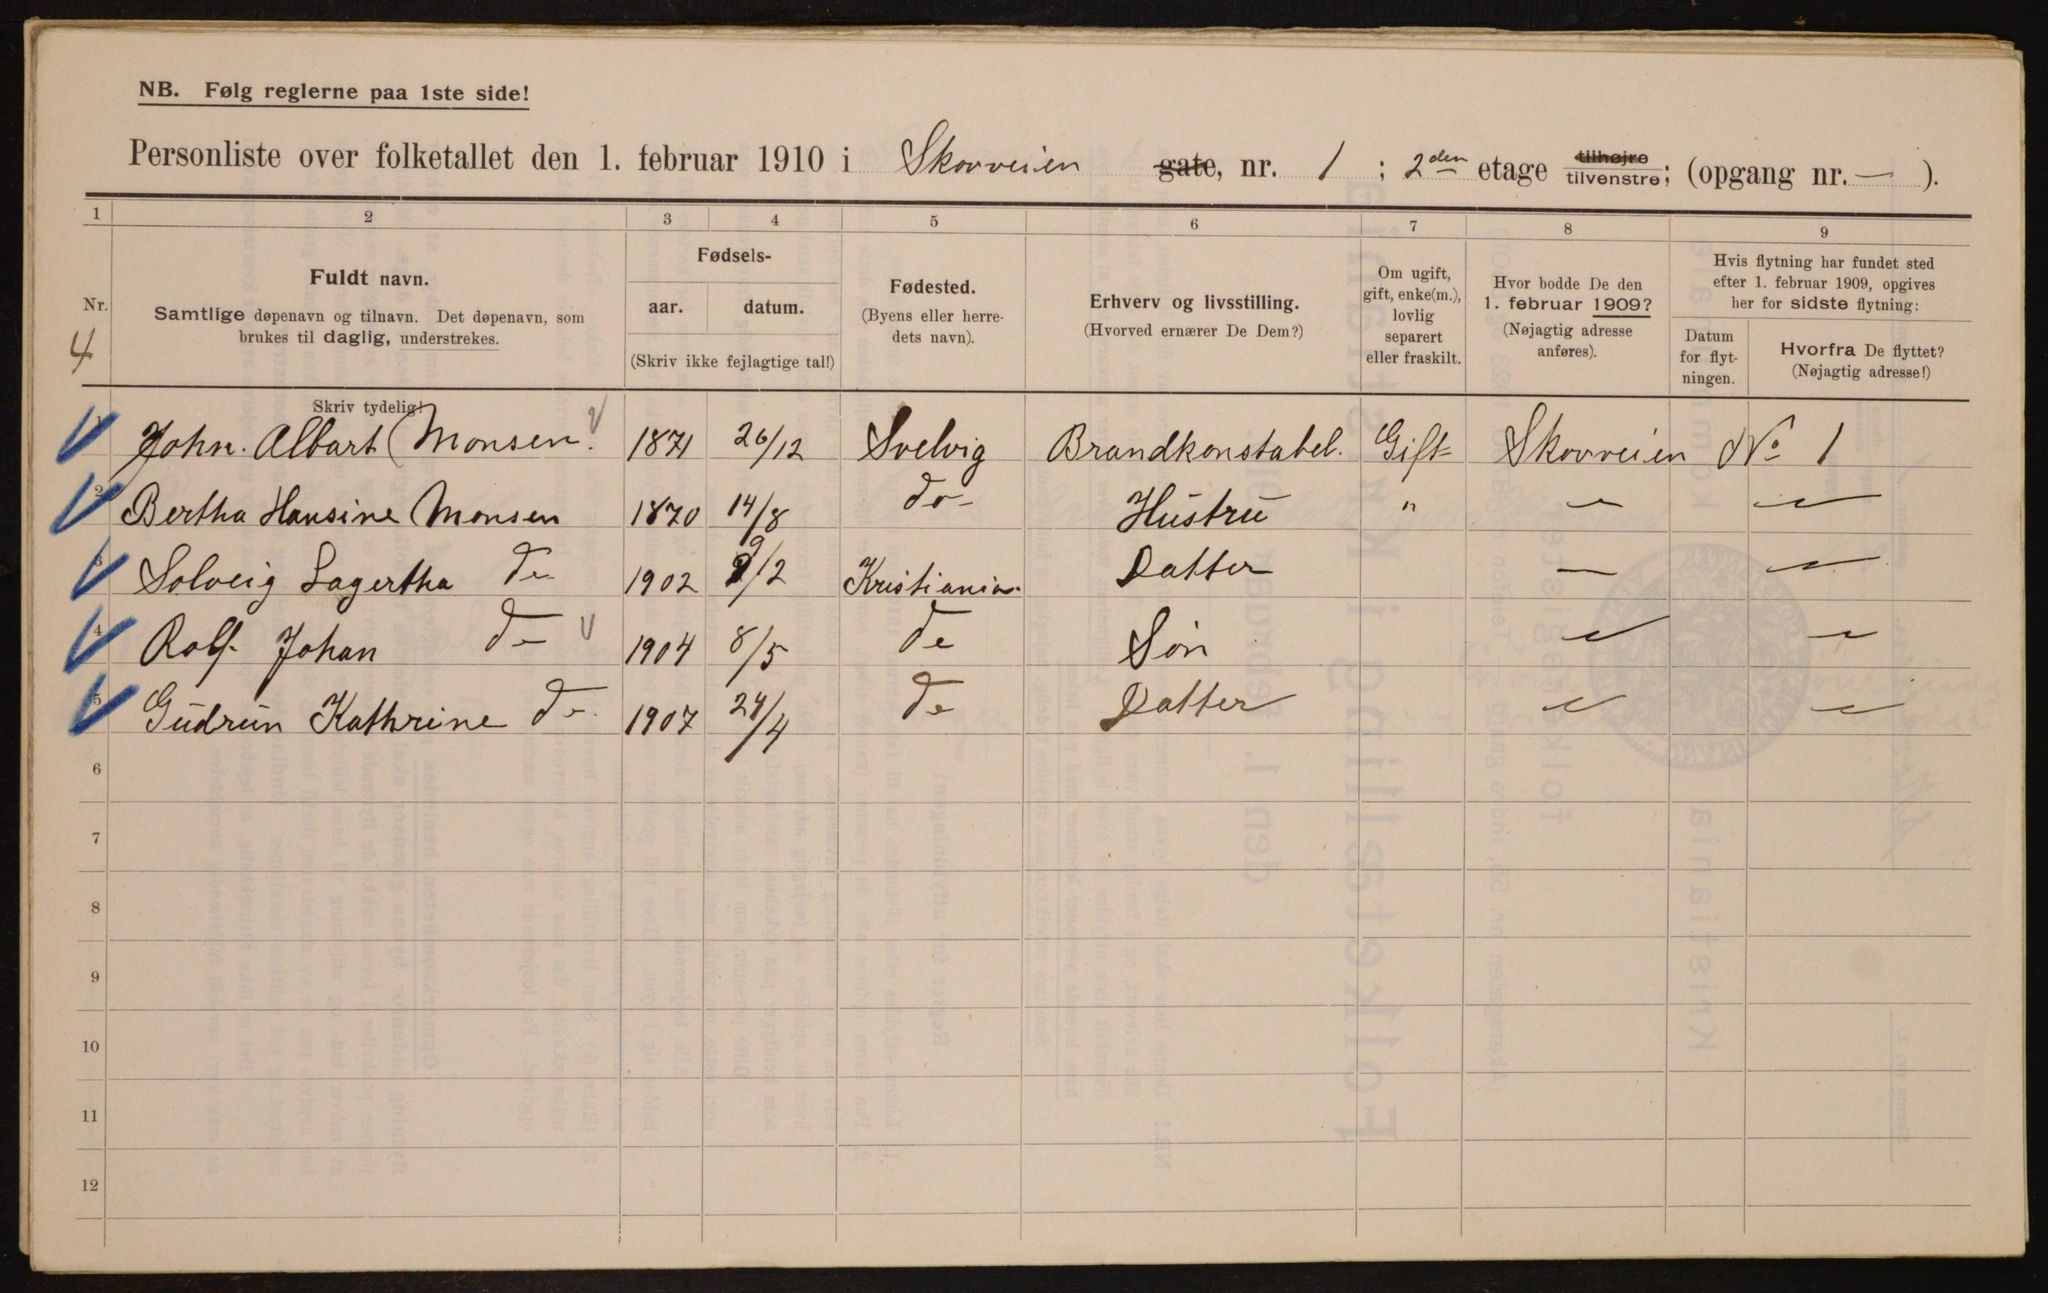 NB. Følg reglerne paa 1ste side!
Personliste over folketallet den 1. februar 1910 i Skovveien gate, nr. 1 ; 2den etage tilhøjre tilvenstre; (opgang nr. — ).
1 2 3 4 5 6 7 8 9
Nr.
4
Fuldt navn.
Samtlige døpenavn og tilnavn. Det døpenavn, som
brukes til daglig, understrekes.
Skriv tydelig!
Fødsels-
aar. datum.
(Skriv ikke fejlagtige tal!)
Fødested.
(Byens eller herre-
dets navn).
Erhverv og livsstilling.
(Hvorved ernærer De Dem?)
Om ugift,
gift, enke(m.),
lovlig
separert
eller fraskilt.
Hvor bodde De den
1. februar 1909?
(Nøjagtig adresse
anføres).
Hvis flytning har fundet sted
efter 1. februar 1909, opgives
her for sidste flytning:
Datum
for flyt-
ningen.
Hvorfra De flyttet?
(Nøjagtig adresse!)
1 John. Albart Monsen. 1871 26/12 Svelvig Brandkonstabel. Gift Skovveien No 1
2 Bertha Hansine Monsen 1870 14/8 do Hustru " — —
3 Solveig Lagertha do 1902 9/2 Kristiania. Datter — —
4 Rolf Johan do 1904 8/5 do Søn — —
5 Gudrun Kathrine do 1907 24/4 do Datter — —
6
7
8
9
10
11
12